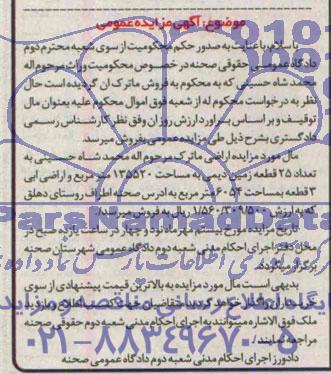 موضوع: آگهی مزایده عمومی
با سلام، با عنایت به صدور حکم محکومیت از سوی شعبه محترم دوم
دادگاه عمومی حقوقی صحنه در خصوص محکومیت وراث مرحوم اله
محمد شاه حسینی که به محکوم به فروش ماترک آن گردیده است حال
نظر به درخواست محکوم له از شعبه فوق اموال محکوم علیه بعنوان مال
توقیف و بر اساس برآورد ارزش روز آن وفق نظر کارشناس رسمی
دادگستری بشرح ذیل طی مزایده عمومی بفروش میرسد.
مال مورد مزایده اراضی ماترک مرحوم اله محمد شاه حسینی به
تعداد ۲۵ قطعه زمین دیمی به مساحت ۱۳۵۵۲۰ متر مربع و اراضی آبی
۳ قطعه بمساحت ۶۰۵۴ متر مربع به آدرس صحنه اطراف روستای دهلق
که به ارزش ریال به فروش میرسد/
تاریخ مزایده مورخ بیستم مهرماه نود و چهار در ساعت یازده صبح در
محل دفتر اجرای احکام مدنی شعبه دوم دادگاه عمومی شهرستان صحنه
برگزار میگردد.
بدیهی است مال مورد مزایده به بالاترین قیمت پیشنهادی از سوی
خریدار واگذار خواهد گردید متقاضیان جهت کسب اطلاع و بازدید از
ملک فوق الاشاره میتوانند به اجرای احکام مدنی شعبه دوم حقوقی صحنه
مراجعه نمایند/
دادورز اجرای احکام مدنی شعبه دوم دادگاه عمومی صحنه
ParsNamadData
۰۲۱-۸۸۳۴۹۶۷۰